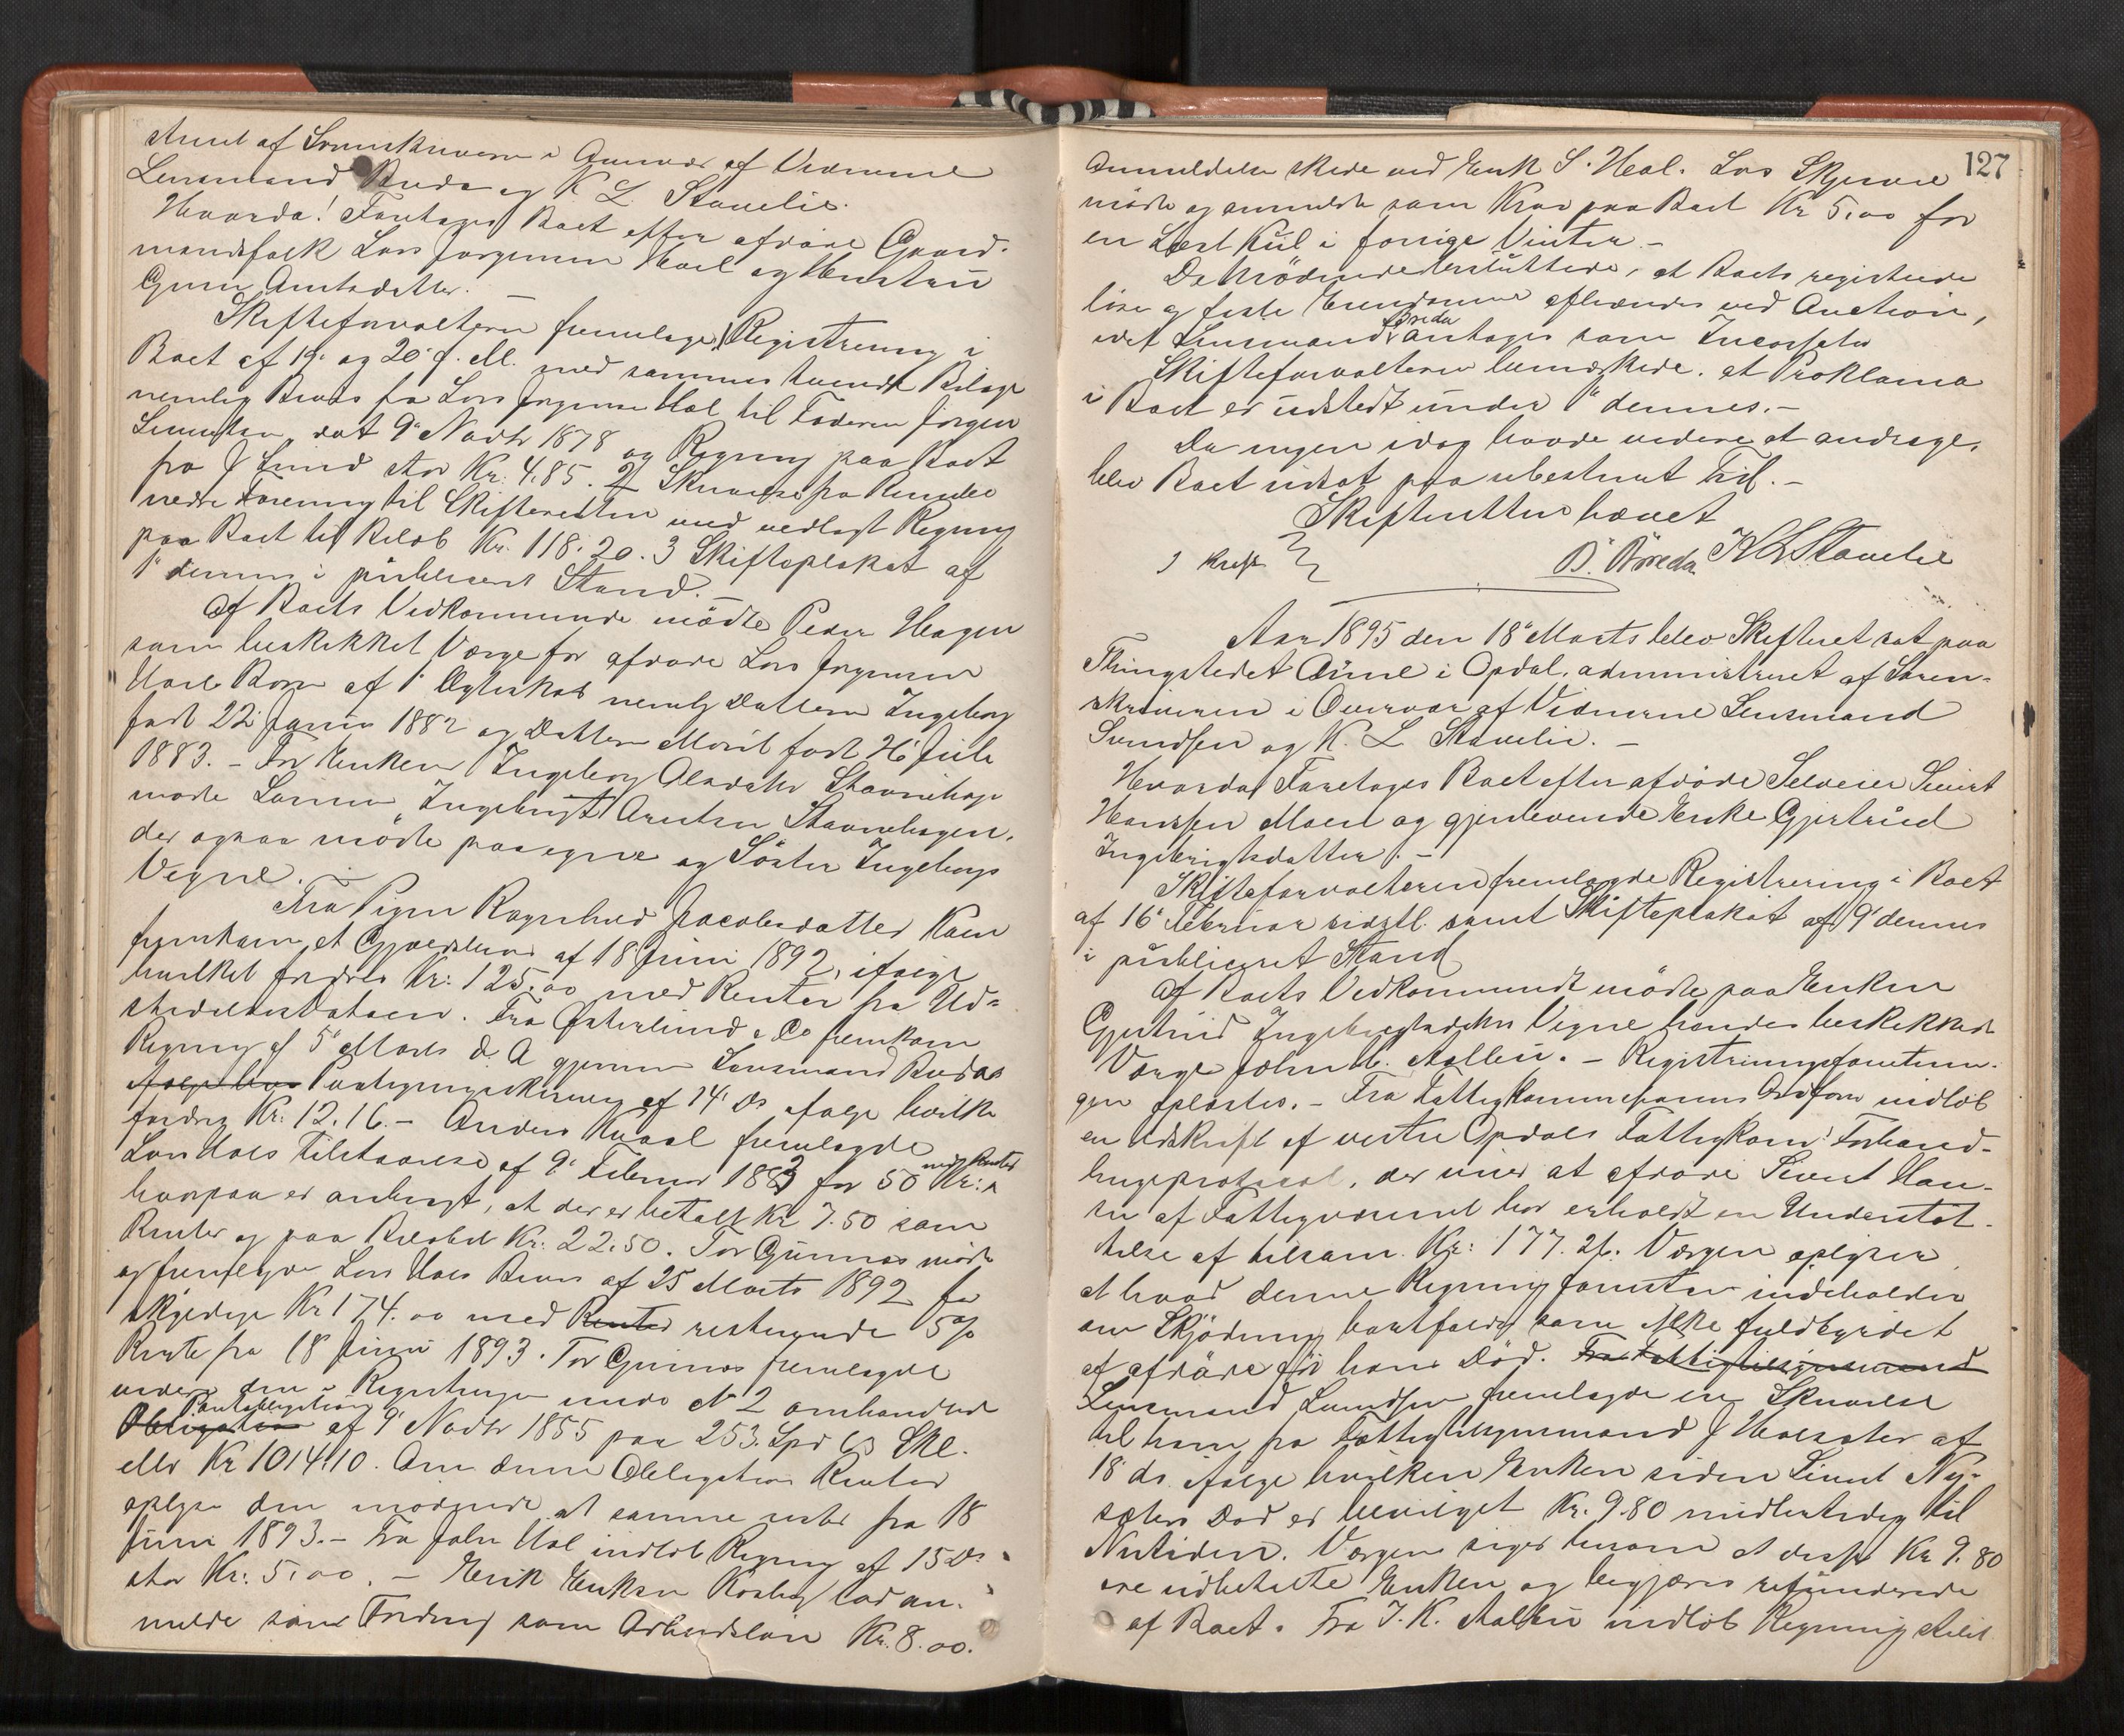 streret af Sorenskriveren i Overvær af Vidnerne
Lensmand Breda og K L Stavelie.
Hvorda! Foretoges Boet efter afdøde Gaard-
mandsfolk Lars Jørgensen Hoel og Hustru
Guru Arntsdatter. —
Skifteforvalteren fremlagde 1 Registrering i
Boet af 19' og 20' f. M. med sammes tvende Bilage
nemlig Brev fra Lars Jørgensen Hol til Faderen Jørgen
dat 9' Novbr 1878 og Regning paa Boet
fra J Lund stor Kr. 4.85. 2/ Skrivelse fra Rennebo
nedre Forening til Skifteretten med vedlagt Regning
paa Boet til Beløb Kr. 118.20. 3 Skifteplakat af
1' dennes i publiceret Stand. —
Af Boets Vedkommende mødte Peder Hagen
som beskikket Værge for afdøde Lars Jørgensen
Hoels Børn af 1' Ægteskab nemlig Datteren Ingeborg
født 22' Juni 1882 og Datteren Marit født 26' Juli
1883. – For Enken Ingeborg Olsdatter Stavnehagen
mødte Sønnen Ingebrigt Arntsen Stavnehagen,
der ogsaa mødte paa egne og Søster Ingeborgs
Vegne. –
Fra Pigen Ragnhild Jacobsdatter Kaen
fremkom et Gjældsbrev af 18 Juni 1892, ifølge
hvilket fordres Kr: 125.00 med Renter fra Ud-
stedelsesdatoen. Fra Østerlund & Co fremkom
Regning af 5' Marts d. A gjennem Lensmand Bredas
ifølge hvis Paategningsskrivning af 14' ds ifølge hvilken
fordres Kr: 12.16. – Anders Kvaal fremlagde
Lars Hoels Tilstaaelse af 9' Februar 1883 for 50 Kr: med Renter
hvorpaa er anbragt, at der er betalt Kr 7.50 som
Renter og paa Beløbet Kr: 22.50. Tor Gunnes mødte
og fremlagde Lars Hoels Bevis af 25 Marts 1892 for
skyldige Kr 174.00 med Renter resterende 5%
Rente fra 18 Juni 1893. Tor Gunnes fremlagde
videre den i Registreringen under N 2 omhandlede
Obligation Pantobligation af 9' Novbr 1855 paa 253. Spd 63 Skl.
eller Kr 1014.10. Om denne Obligations Renter
oplyser den mødende at samme rester fra 18
Juni 1893. – Fra John Hol indløb Regning af 15 ds
stor Kr: 5.00. – Erik Eriksen lod an-
melde som Fordring som Arbeidsløn Kr. 8.00.
127
Anmeldelsen skede ved Enk S. Hol. Lars Skjerve
mødte og anmeldte som Krav paa Boet Kr 5.00 for
en Læst Kul i forrige Vinter. –
De Mødende besluttede, at Boets registrerede
løse og faste Eiendomme afhændes ved Auction,
idet Lensmand Breda antages som Incassator
Skifteforvalteren bemærkede, at Proklama
i Boet er udstedt under 1' dennes. –
Da ingen idag havde videre at andrage,
blev Boet udsat paa ubestemt Tid. –
Skifteretten hævet
B. Breda K L Stavelie
Aar 1895 den 18' Marts blev Skifteret sat paa
Thingstedet Aune i Opdal, administreret af Soren-
skriveren i Overvær af Vidnerne Lensmand
Svendsen og K. L Stavelie. –
Hvorda! Foretoges Boet efter afdøde Selveier Sivert
Hansen Moen og gjenlevende Enke Gjertrud
Ingebrigtsdatter. –
Skifteforvalteren fremlagde Registrering i Boet
af 16' Februar sidstl. samt Skifteplakat af 9' dennes
i publiceret Stand
Af Boets Vedkommende mødte paa Enken
Gjertrud Ingebrigtsdatters Vegne hendes beskikkede
Værge John Aalbu. – Registreringsforretnin-
gen oplæstes. – Fra Fattigkommissionens Ordfører indløb
en Udskrift af vestre Opdals Fattigkom: Forhand-
lingsprotocol, der viser at afdøde Sivert Han-
sen af Fattigvæsenet har erholdt en Understøt-
telse af tilsam. Kr: 177.26. Værgen oplyser
at hvad denne Regning forøvrigt indeholder
om Skjødning bortfalder som ikke fuldbyrdet
af afdøde før hans Død. Fra Fattigtilsynsmand
Lensmand Svendsen fremlagde en Skrivelse
til ham fra Fattigtilsynsmand J Horsæter af
18' ds ifølge hvilken Enken siden Sivert Ny-
sæters Død er bevilget Kr. 9.80 midlertidig til
Nutiden. Værgen siger herom at disse Kr 9.80
ere udbetalte Enken og begjæres refunderede
af Boet. Fra J. K. Aalbu indløb Regning